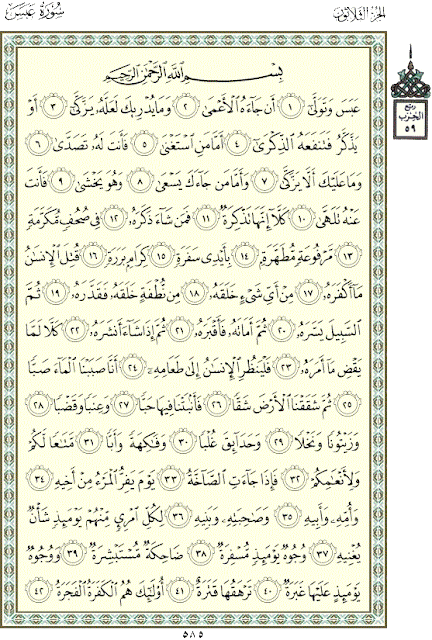 الجزء الثلاثون
سورة عبس
بسم الله الرحمن الرحيم
عَبَسَ وَتَوَلَّىٰٓ ١ أَن جَآءَهُ ٱلْأَعْمَىٰ ٢ وَمَا يُدْرِيكَ لَعَلَّهُۥ يَزَّكَّىٰٓ ٣ أَوْ
يَذَّكَّرُ فَتَنفَعَهُ ٱلذِّكْرَىٰٓ ٤ أَمَّا مَنِ ٱسْتَغْنَىٰ ٥ فَأَنتَ لَهُۥ تَصَدَّىٰ ٦
وَمَا عَلَيْكَ أَلَّا يَزَّكَّىٰ ٧ وَأَمَّا مَن جَآءَكَ يَسْعَىٰ ٨ وَهُوَ يَخْشَىٰ ٩ فَأَنتَ
عَنْهُ تَلَهَّىٰ ١٠ كَلَّآ إِنَّهَا تَذْكِرَةٌ ١١ فَمَن شَآءَ ذَكَرَهُۥ ١٢ فِى صُحُفٍ مُّكَرَّمَةٍ
١٣ مَّرْفُوعَةٍ مُّطَهَّرَةٍۭ ١٤ بِأَيْدِى سَفَرَةٍ ١٥ كِرَامٍۭ بَرَرَةٍ ١٦ قُتِلَ ٱلْإِنسَٰنُ
مَآ أَكْفَرَهُۥ ١٧ مِنْ أَىِّ شَىْءٍ خَلَقَهُۥ ١٨ مِن نُّطْفَةٍ خَلَقَهُۥ فَقَدَّرَهُۥ ١٩ ثُمَّ
ٱلسَّبِيلَ يَسَّرَهُۥ ٢٠ ثُمَّ أَمَاتَهُۥ فَأَقْبَرَهُۥ ٢١ ثُمَّ إِذَا شَآءَ أَنشَرَهُۥ ٢٢ كَلَّا لَمَّا
يَقْضِ مَآ أَمَرَهُۥ ٢٣ فَلْيَنظُرِ ٱلْإِنسَٰنُ إِلَىٰ طَعَامِهِۦٓ ٢٤ أَنَّا صَبَبْنَا ٱلْمَآءَ صَبًّا
٢٥ ثُمَّ شَقَقْنَا ٱلْأَرْضَ شَقًّا ٢٦ فَأَنۢبَتْنَا فِيهَا حَبًّا ٢٧ وَعِنَبًا وَقَضْبًا ٢٨
وَزَيْتُونًا وَنَخْلًا ٢٩ وَحَدَآئِقَ غُلْبًا ٣٠ وَفَٰكِهَةً وَأَبًّا ٣١ مَّتَٰعًا لَّكُمْ
وَلِأَنْعَٰمِكُمْ ٣٢ فَإِذَا جَآءَتِ ٱلصَّآخَّةُ ٣٣ يَوْمَ يَفِرُّ ٱلْمَرْءُ مِنْ أَخِيهِ ٣٤
وَأُمِّهِۦ وَأَبِيهِ ٣٥ وَصَٰحِبَتِهِۦ وَبَنِيهِ ٣٦ لِكُلِّ ٱمْرِئٍ مِّنْهُمْ يَوْمَئِذٍ شَأْنٌ
يُغْنِيهِ ٣٧ وُجُوهٌ يَوْمَئِذٍ مُّسْفِرَةٌ ٣٨ ضَاحِكَةٌ مُّسْتَبْشِرَةٌ ٣٩ وَوُجُوهٌ
يَوْمَئِذٍ عَلَيْهَا غَبَرَةٌ ٤٠ تَرْهَقُهَا قَتَرَةٌ ٤١ أُو۟لَٰٓئِكَ هُمُ ٱلْكَفَرَةُ ٱلْفَجَرَةُ ٤٢
ربع
الحزب
٥٩
٥٨٥